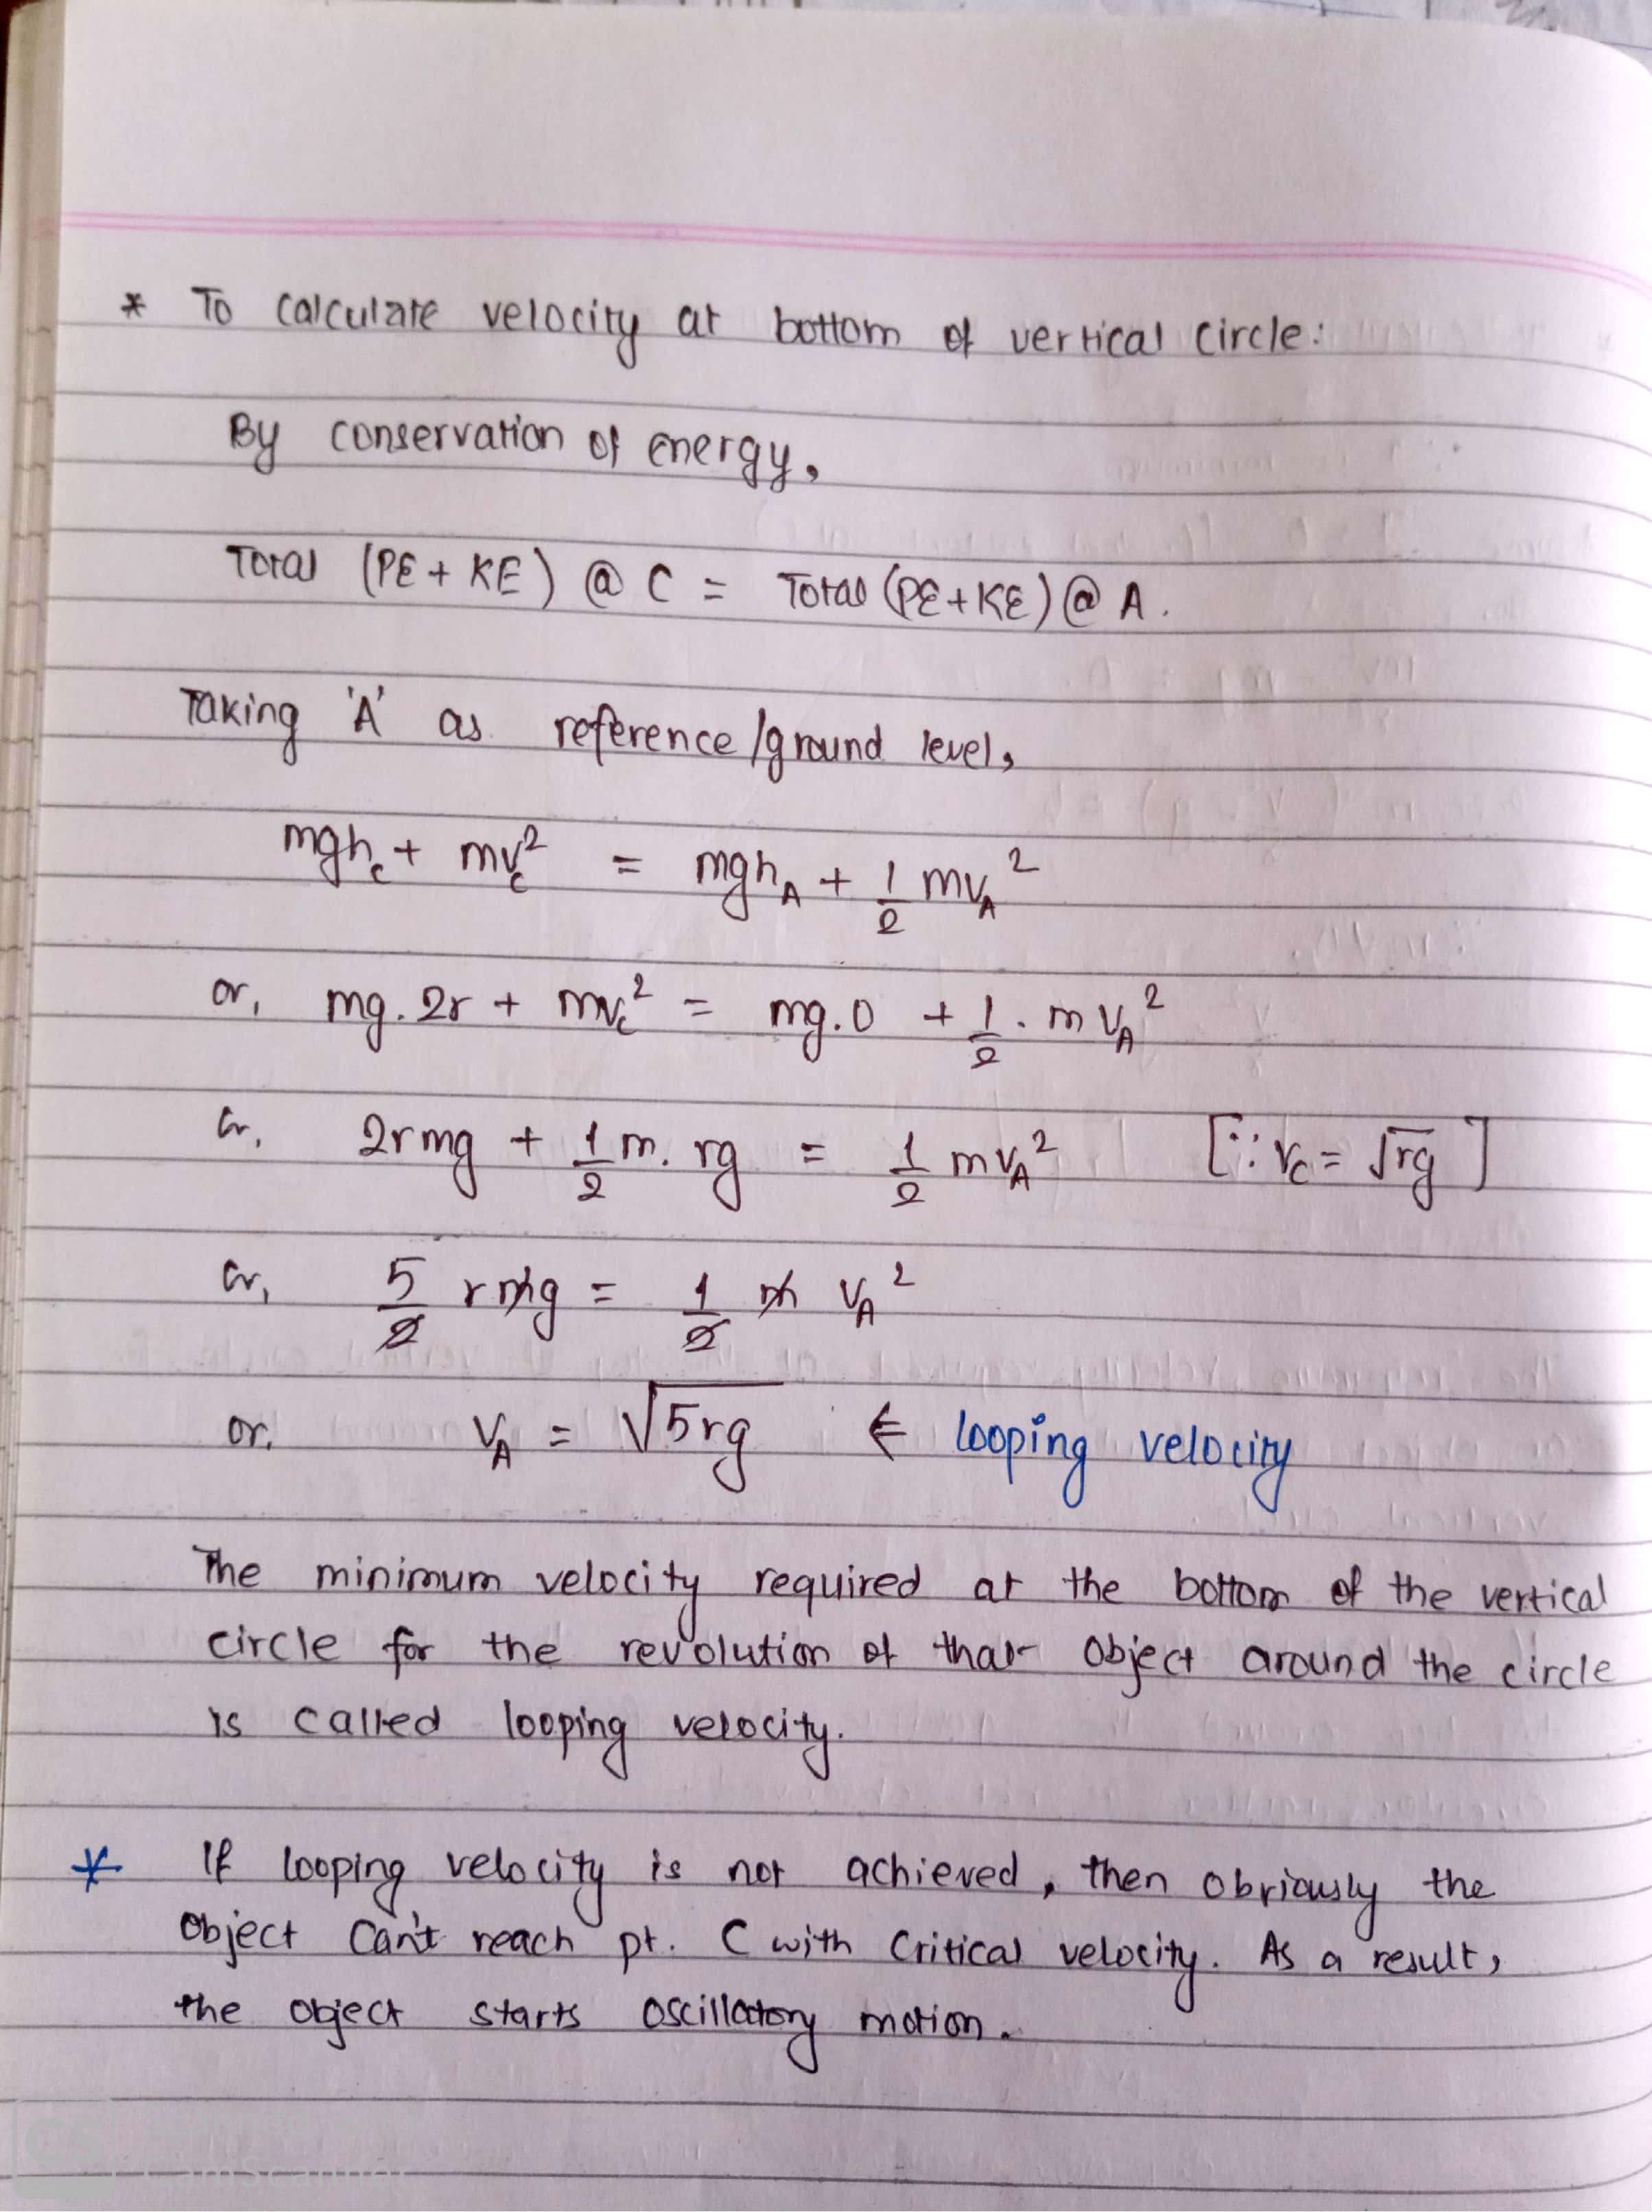 * To calculate velocity at bottom of vertical circle:
By conservation of energy,
Total (PE + KE) @ C = Total (PE+KE) @ A.
Taking 'A' as reference/ground level,
mgh_C + mv_C² = mgh_A + 1/2 mv_A²
or, mg.2r + mv_C² = mg.0 + 1/2 . m v_A²
or, 2rmg + 1/2 m. rg = 1/2 mv_A² [∵ v_C = √rg]
or, 5/2 rmg = 1/2 m v_A²
or, v_A = √5rg ← looping velocity
The minimum velocity required at the bottom of the vertical
circle for the revolution of that object around the circle
is called looping velocity.
* If looping velocity is not achieved, then obviously the
object can't reach pt. C with critical velocity. As a result,
the object starts oscillatory motion.
CS